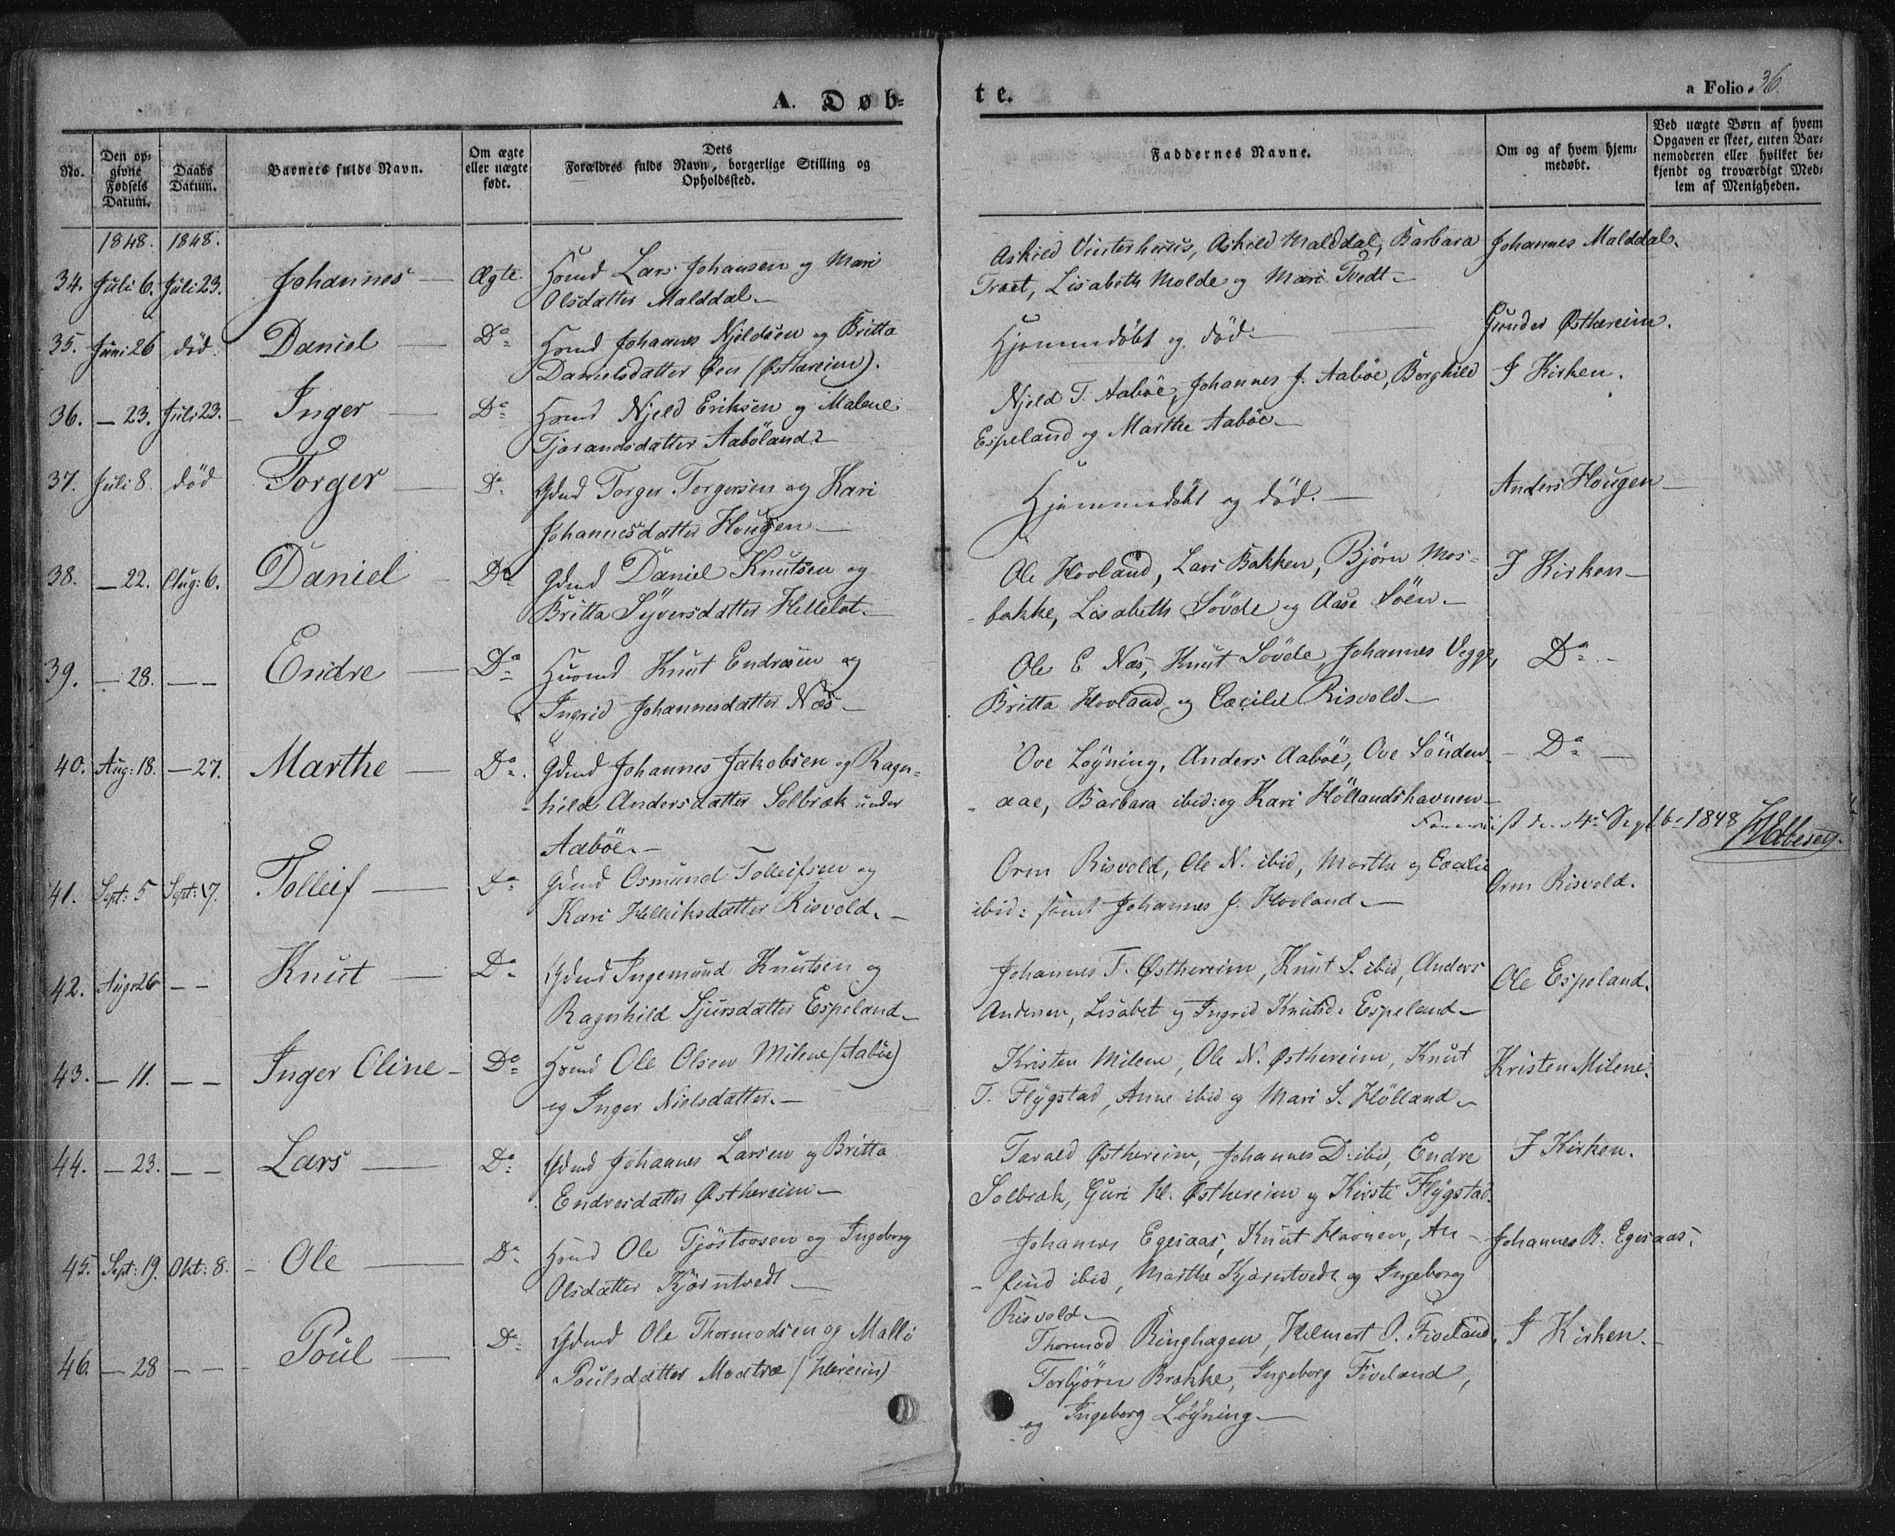 A. Døb-
te.
a Folio 36.
No.
Den op-
givne
Fødsels
Datum.
Daabs
Datum.
Barnets fulde Navn.
Om ægte
eller uægte
født.
Dets
Forældres fulde Navn, borgerlige Stilling og
Opholdssted.
Faddernes Navne.
Om og af hvem hjem-
medøbt.
Ved uægte Børn af hvem
Opgaven er skeet, enten Bar-
nemoderen eller hvilket be-
kjendt og troværdigt Med-
lem af Menigheden.
1848. 1848.
34. Juli 6. Juli 23. Johannes — Ægte. Hmd Lars Johansen og Mari
Olsdatter Malddal. —
Askild Vinterhuus, Askild Malddal, Barbara
Træet, Lisabeth Molde og Mari Tvedt —
Johannes Malddal.
35. Juni 26 død. Daniel — Do Hmd Johannes Njeldsen og Britta
Danielsdatter Øen (Østhereim).
Hjemmedøbt og død —
Gunder Østhereim.
36. — 23. Juli 23. Inger — Do Hmd Njeld Eriksen og Malene
Tjorandsdatter Aabøland
Njeld T. Aabøe, Johannes J. Aabøe, Borghild
Espeland og Marthe Aabøe —
I Kirken.
37. Juli 8. død Torger — Do Gdmd Torger Torgersen og Kari
Johannesdatter Hougen —
Hjemmedøbt og død. —
Anders Hougen —
38. — 22. Aug: 6. Daniel — Do Gdmd Daniel Knutsen og
Britta Syversdatter Helleløt. —
Ole Hovland, Lars Bakken, Bjørn Mos-
bakke, Lisabeth Søvde og Aase Söen —
I Kirken —
39. — 28. — — Endre — Do Huusmd Knut Endresen og
Ingrid Johannesdatter Næs —
Ole E. Næs, Knut Søvde, Johannes Vegge,
Britta Hovland og Cæcilie Risvold —
Do —
40. Aug: 18. — 27. Marthe — Do Gdmd Johannes Jakobsen og Ragn-
hilde Andersdatter Solbræk under
Aabøe. —
Ove Løyning, Anders Aabøe, Ove Sønden-
aae, Barbara ibid: og Kari Höllandshavnen —
— Do —
den 4de Septbr 1848
41. Sept: 5 Sept: 17. Tolleif — Do Gdmd Osmund Tolleifsen og
Kari Helleiksdatter Risvold. —
Orm Risvold, Ole N. ibid, Martha og Cecilie
ibid: samt Johannes J. Hovland —
Orm Risvold.
42. Aug: 26 — — Knut — Do Gdmd Ingemund Knutsen og
Ragnhild Sjursdatter Espeland —
Johannes T. Østhereim, Knut S. ibid, Anders
Andersen, Lisabet og Ingrid Knutsd. Espeland —
Ole Espeland.
43. — 11. — — Inger Oline — Do Hmd Ole Olsen Milene (Aabøe)
og Inger Nielsdatter. —
Kristen Milene, Ole N. Østhereim, Knut
T. Flÿgstad, Anne ibid og Mari S. Hölland —
Kristen Milene.
44. — 23. — — Lars — Do Gdmd Johannes Larsen og Britta
Endresdatter Østhereim —
Tarald Østhereim, Johannes D. ibid, Endre
Solbræk, Guri H. Østhereim og Kirsti Flÿgstad.
I Kirken.
45. Sept: 19. Okt: 8. Ole — Do Hmd Ole Tjöstovsen og Ingeborg
Olsdatter Kjørntvedt —
Johannes Egeraas, Knut Havnen, An-
find ibid, Marthe Kjørntvedt og Ingeborg
Risvold —
Johannes B. Egeraas.
46. — 28 — — Poul — Do Gdmd Ole Thormodsen og Malli
Poulsdatter Moetræ (Hereim)
Thormod Ringhagen, Helmert O. Fiveland,
Torbjørn Brække, Ingeborg Fiveland,
og Ingeborg Løÿning —
I Kirken. —